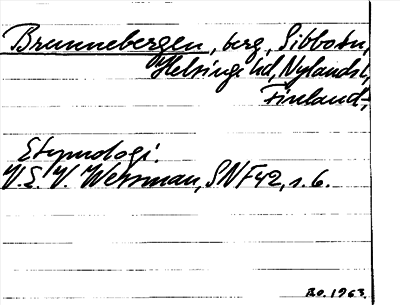 Brunnebergen, berg, Sibbo sn,
Helsinge hd, Nylands l,
Finland.
Etymologi.
V.E.V. Wessman, SNF 42, s. 6.
Bo. 1963.